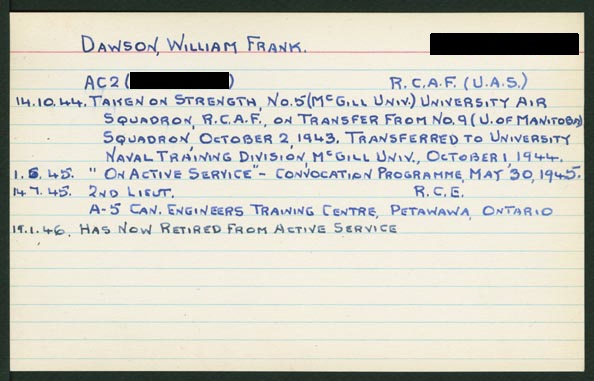 DAWSON, WILLIAM FRANK.
AC2 ( ) R.C.A.F. (U.A.S.)
14.10.44. TAKEN ON STRENGTH, NO.5 (MCGILL UNIV.) UNIVERSITY AIR
SQUADRON, R.C.A.F., ON TRANSFER FROM NO.9 (U. OF MANITOBA)
SQUADRON, OCTOBER 2, 1943. TRANSFERRED TO UNIVERSITY
NAVAL TRAINING DIVISION, MCGILL UNIV., OCTOBER 1, 1944.
1.6.45. "ON ACTIVE SERVICE" - CONVOCATION PROGRAMME, MAY 30, 1945.
14.7.45. 2ND LIEUT. R.C.E.
A-5 CAN. ENGINEERS TRAINING CENTRE, PETAWAWA, ONTARIO
.1.46. HAS NOW RETIRED FROM ACTIVE SERVICE